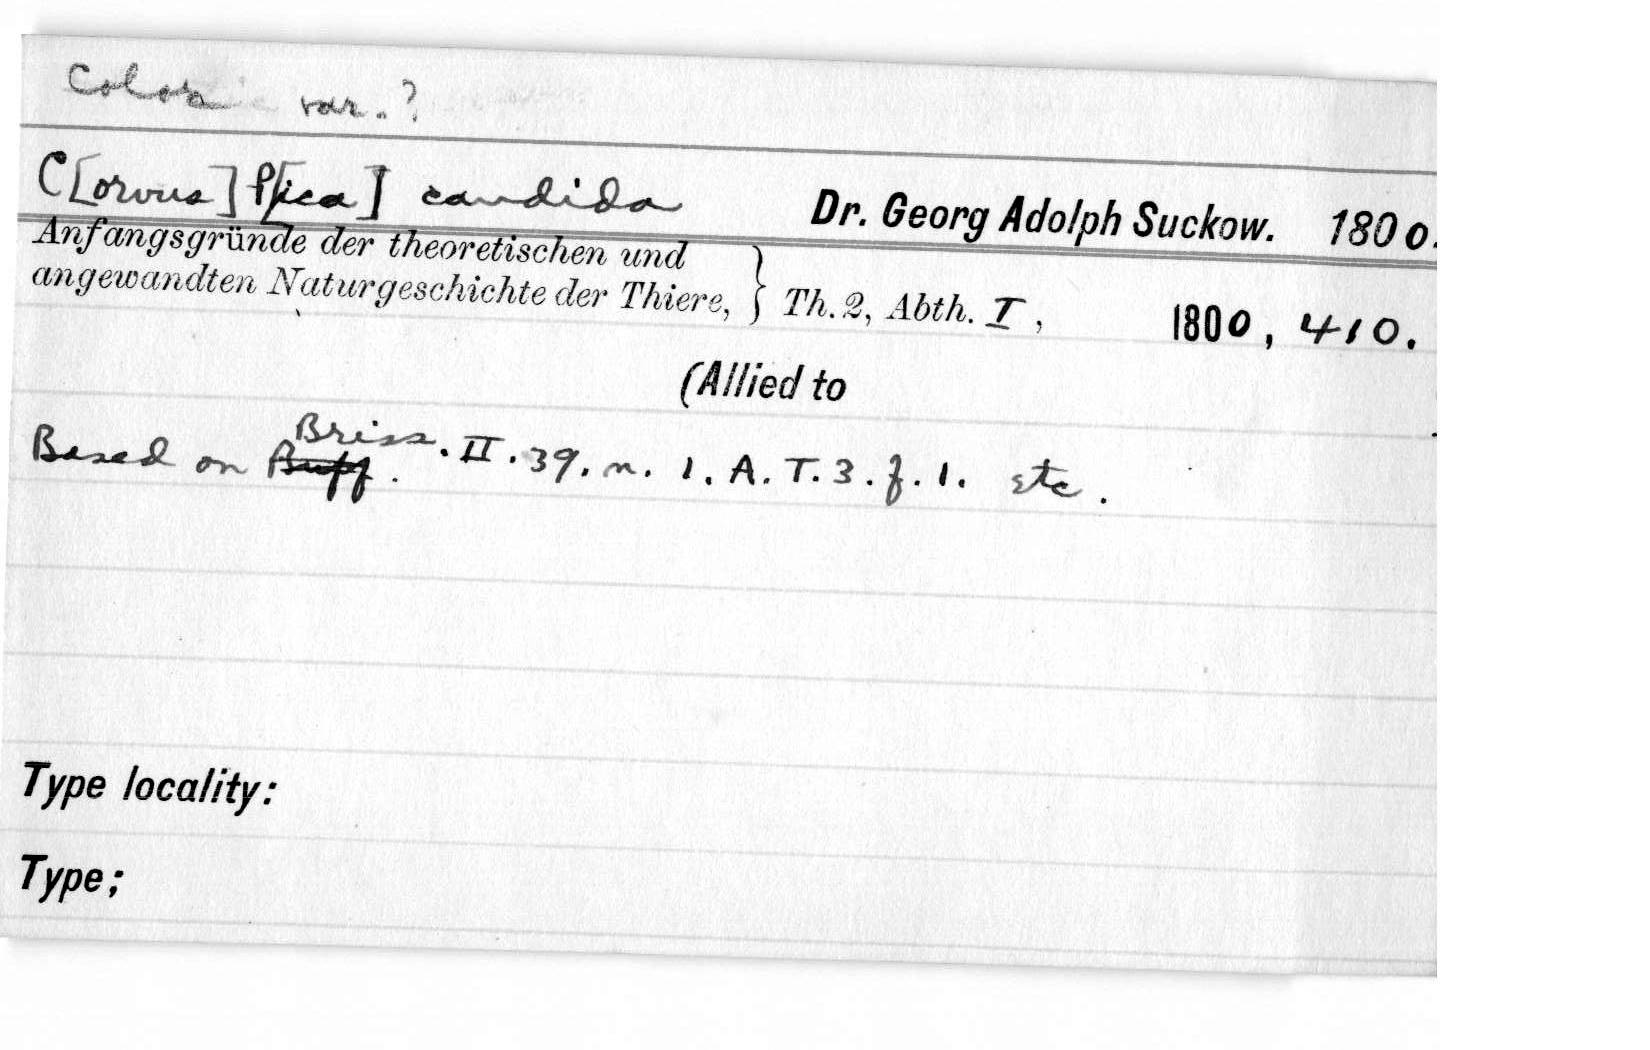 Color var.?
C[orvus] P[ica] candida Dr. Georg Adolph Suckow. 1800.
Anfangsgründe der theoretischen und
angewandten Naturgeschichte der Thiere, } Th. 2, Abth. I, 1800, 410.
(Allied to
Based on Buff. Briss. II. 39. n. 1. A. T. 3. f. 1. etc.
Type locality:
Type;